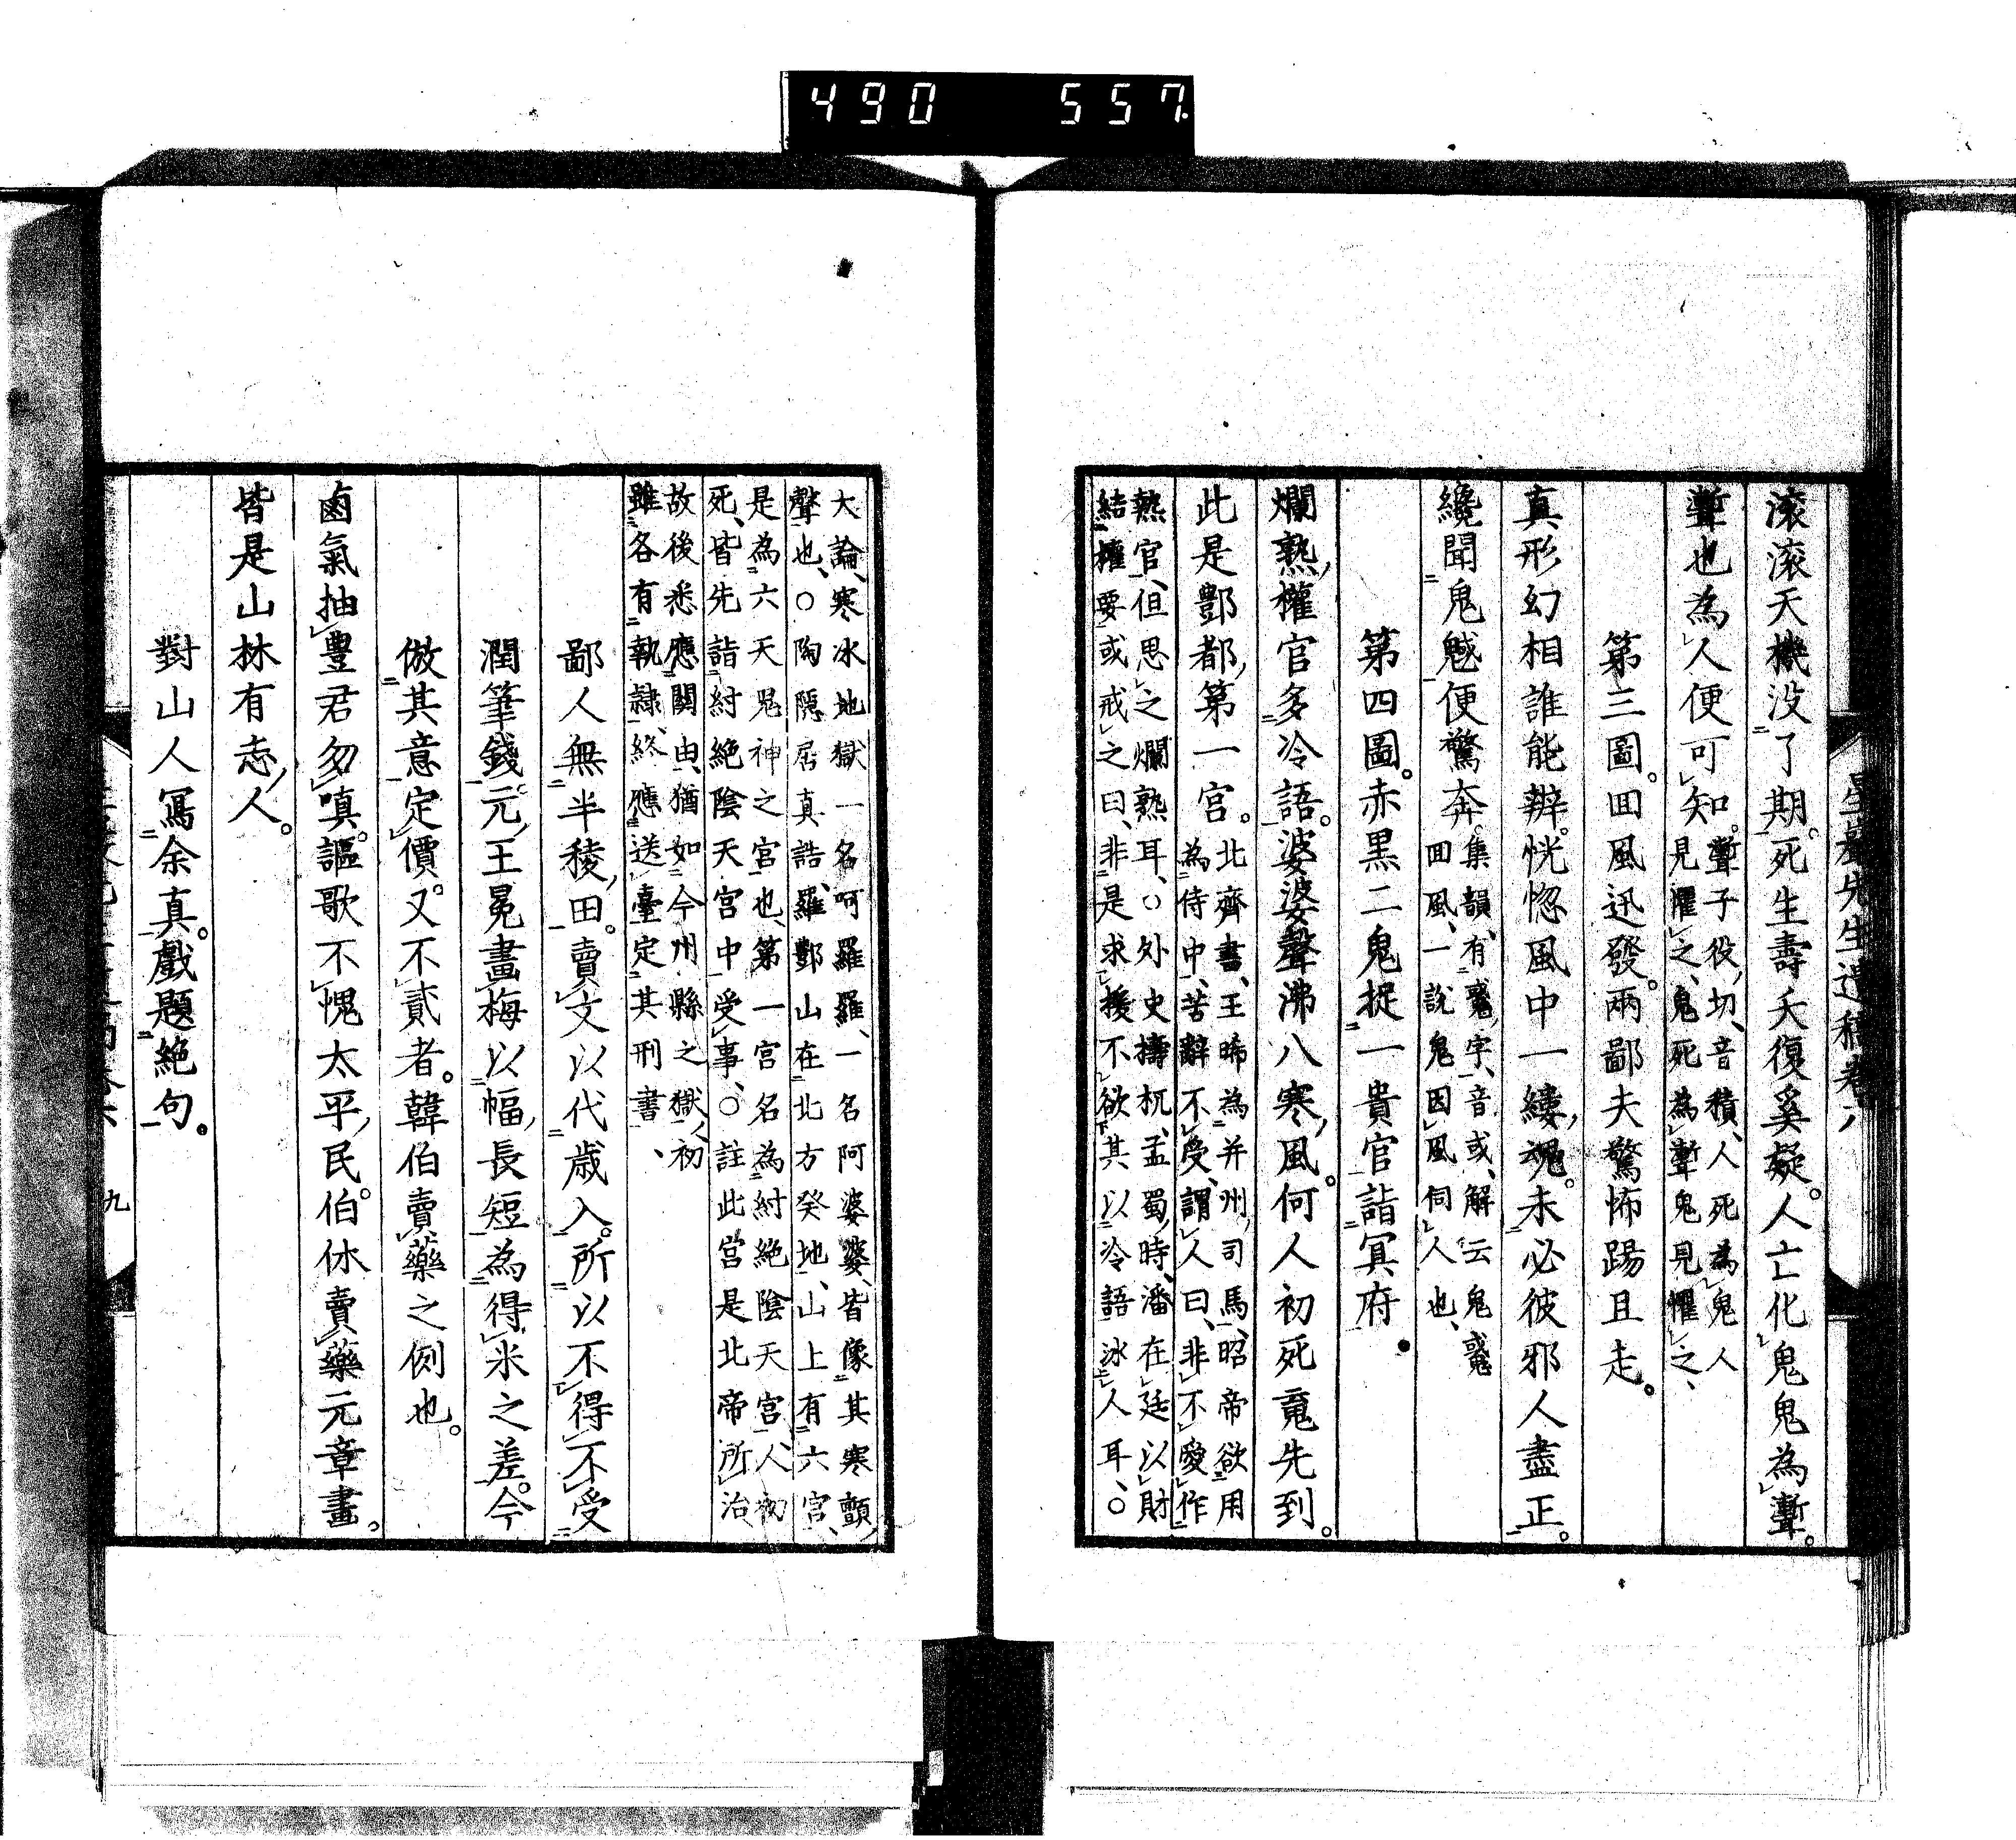 490 557
滾滾天機没了期。死生壽夭復奚疑。人亡化鬼鬼為魙。
魙也為人便可知。魙子役切、音積、人死為鬼人
見懼之、鬼死為魙鬼見懼之、
第三圖。回風迅發。兩鄙夫驚怖踢且走。
真形幻相誰能辨。恍惚風中一縷魂。未必彼邪人盡正。
纔聞鬼魊便驚奔。集韻、有魊字、音或、解云鬼魊
回風、一説鬼因風伺人也、
第四圖。赤黒二鬼捉一貴官詣冥府。
爛熟權官多冷語。婆婆聲沸八寒風。何人初死竟先到。
此是酆都第一宮。北齊書、王晞為并州司馬、昭帝欲用
為侍中、苦辭不受、謂人曰、非不愛作
熱官、但思之爛熟耳、○外史檮杌、孟蜀時、潘在廷以財
結權要或戒之曰、非是求援不欲其以冷語冰人耳、○
大論、寒冰地獄一名呵羅羅、一名阿婆婆、皆像其寒顫
聲也、○陶隱居真誥、羅酆山在北方癸地、山上有六宮、
是為六天鬼神之宮也、第一宮名為紂絶陰天宮、人初
死、皆先詣紂絶陰天宮中受事、○註此宮是北帝所治
故後悉應關由、猶如今州縣之獄、初
雖各有執隷、終應送臺定其刑書、
鄙人無半稜田。賣文以代歳入。所以不得不受
潤筆錢。元王冕畫梅以幅長短為得米之差。今
倣其意定價。又不貳者。韓伯賣藥之例也。
鹵氣抽豐君勿嗔。謳歌不愧太平民。伯休賣藥元章畫。
皆是山林有志人。
對山人寫余真。戲題絶句。
九